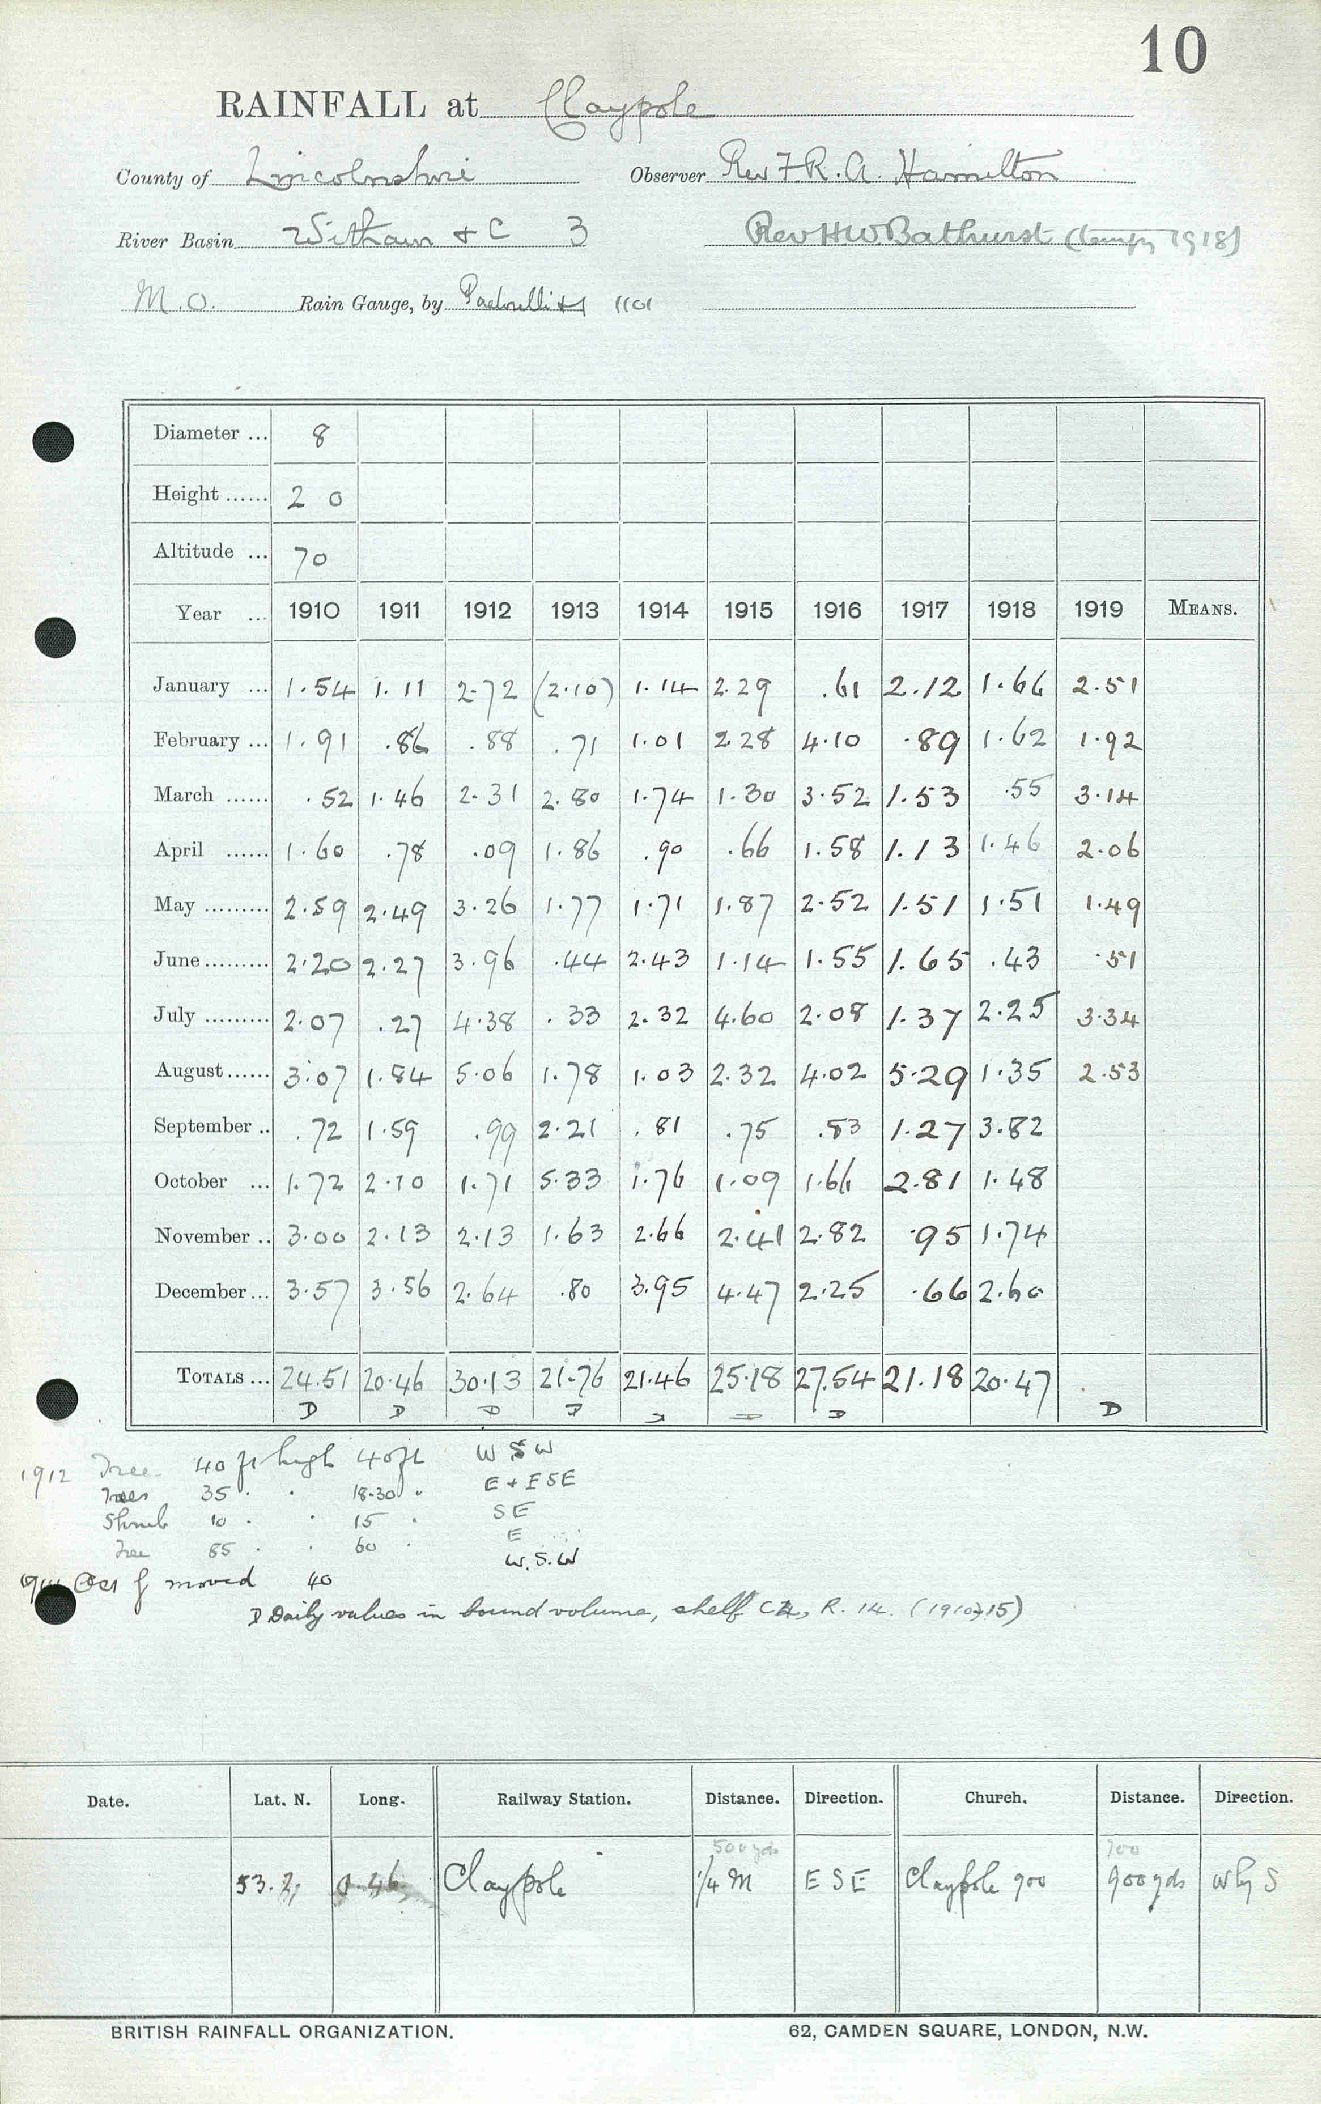 10
RAINFALL at Claypole
County of Lincolnshire Observer Rev F.R.A. Hamilton
River Basin Witham & C 3 Rev H W Bathurst (tempy 1918)
M.O. Rain Gauge, by 1101
Diameter ... 8
Height ...... 2 0
Altitude ... 70
Year ... 1910 1911 1912 1913 1914 1915 1916 1917 1918 1919 MEANS.
January ... 1.54 1.11 2.72 (2.10) 1.14 2.29 .61 2.12 1.66 2.51
February ... 1.91 .86 .88 .71 1.01 2.28 4.10 .89 1.62 1.92
March ...... .52 1.46 2.31 2.80 1.74 1.30 3.52 1.53 .55 3.14
April ...... 1.60 .78 .09 1.86 .90 .66 1.58 1.13 1.46 2.06
May ......... 2.59 2.49 3.26 1.77 1.71 1.87 2.52 1.51 1.51 1.49
June ......... 2.20 2.27 3.96 .44 2.43 1.14 1.55 1.65 .43 .51
July ......... 2.07 .27 4.38 .33 2.32 4.60 2.08 1.37 2.25 3.34
August ...... 3.07 1.84 5.06 1.78 1.03 2.32 4.02 5.29 1.35 2.53
September .. .72 1.59 .99 2.21 .81 .75 .83 1.27 3.82
October ... 1.72 2.10 1.71 5.33 1.76 1.09 1.66 2.81 1.48
November .. 3.00 2.13 2.13 1.63 2.66 2.41 2.82 .95 1.74
December ... 3.57 3.56 2.64 .80 3.95 4.47 2.25 .66 2.60
TOTALS ... 24.51 20.46 30.13 21.76 21.46 25.18 27.54 21.18 20.47
D D D D D D D D
1912 Tree 40 ft high 40 ft W S W
Trees 35 . . 18.30 " E + ESE
Shrub 10 . . 15 . SE
Tree 85 . . 60 . E
W.S.W
moved 40
D Daily values in bound volume, shelf C4, R. 14. (1910-15)
Date. Lat. N. Long. Railway Station. Distance. Direction. Church. Distance. Direction.
500 yds 700
53.2 0.46 Claypole 1/4 M E S E Claypole 900 900 yds W by S
BRITISH RAINFALL ORGANIZATION. 62, CAMDEN SQUARE, LONDON, N.W.